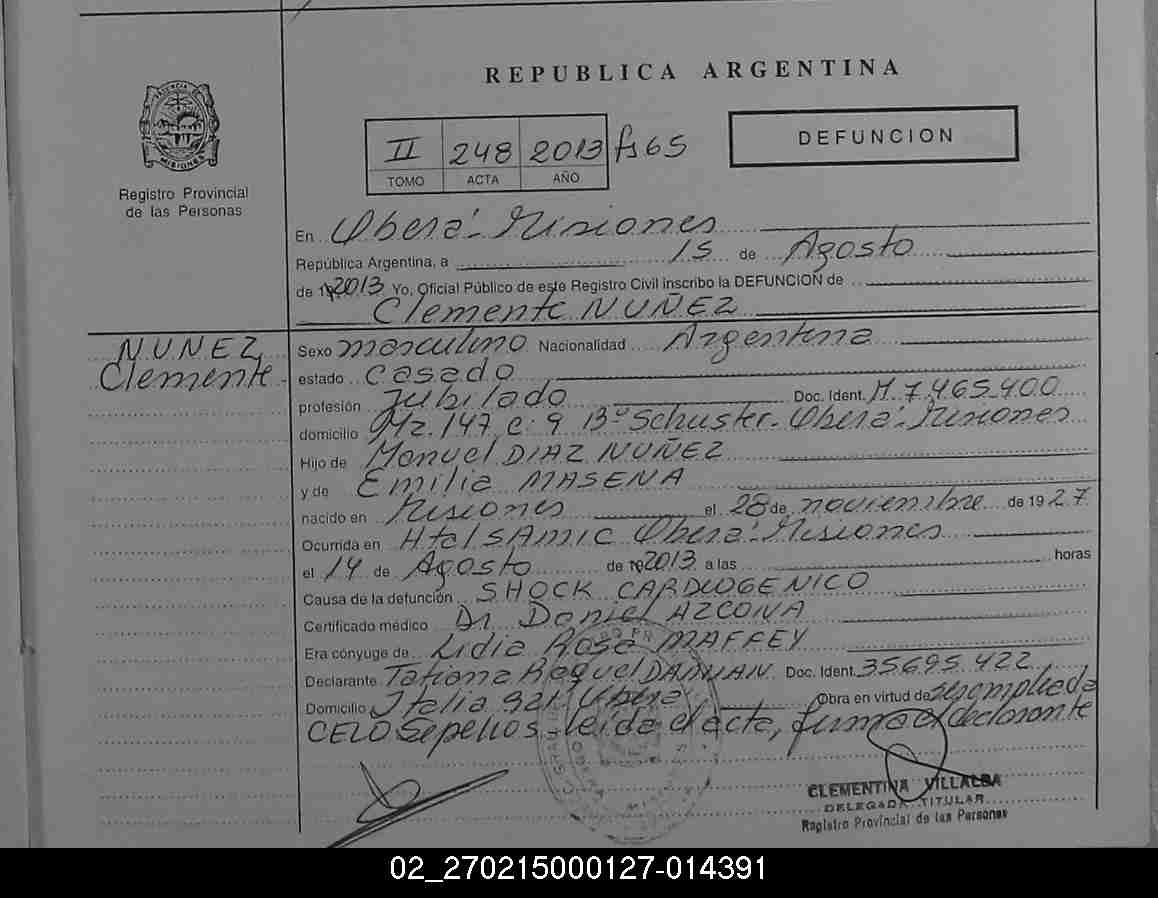 REPUBLICA ARGENTINA
Registro Provincial
de las Personas
II 248 2013 fs 65
TOMO ACTA AÑO
DEFUNCION
En Oberá - Misiones
República Argentina, a 15 de Agosto
de 2013 Yo, Oficial Público de este Registro Civil inscribo la DEFUNCION de
Clemente NUÑEZ
NUÑEZ
Clemente
Sexo masculino Nacionalidad Argentina
estado Casado
profesión Jubilado Doc. Ident. M. 7.465.400
domicilio Mz. 147, c. 9 Bº Schuster - Oberá - Misiones
Hijo de Manuel DIAZ NUÑEZ
y de Emilia MASENA
nacido en Misiones el 28 de noviembre de 1927
Ocurrida en Htal SAMIC Oberá - Misiones
el 14 de Agosto de 2013 a las horas
Causa de la defunción SHOCK CARDIOGENICO
Certificado médico Dr Daniel AZCONA
Era cónyuge de Lidia Rosa MAFFEY
Declarante Tatiana Raquel Doc. Ident. 35695.422
Domicilio Italia Oberá Obra en virtud de ser empleada
CELO Sepelios - leída el acta, firma el declarante
CLEMENTINA VILLALBA
DELEGADA TITULAR
Registro Provincial de las Personas
02_270215000127-014391